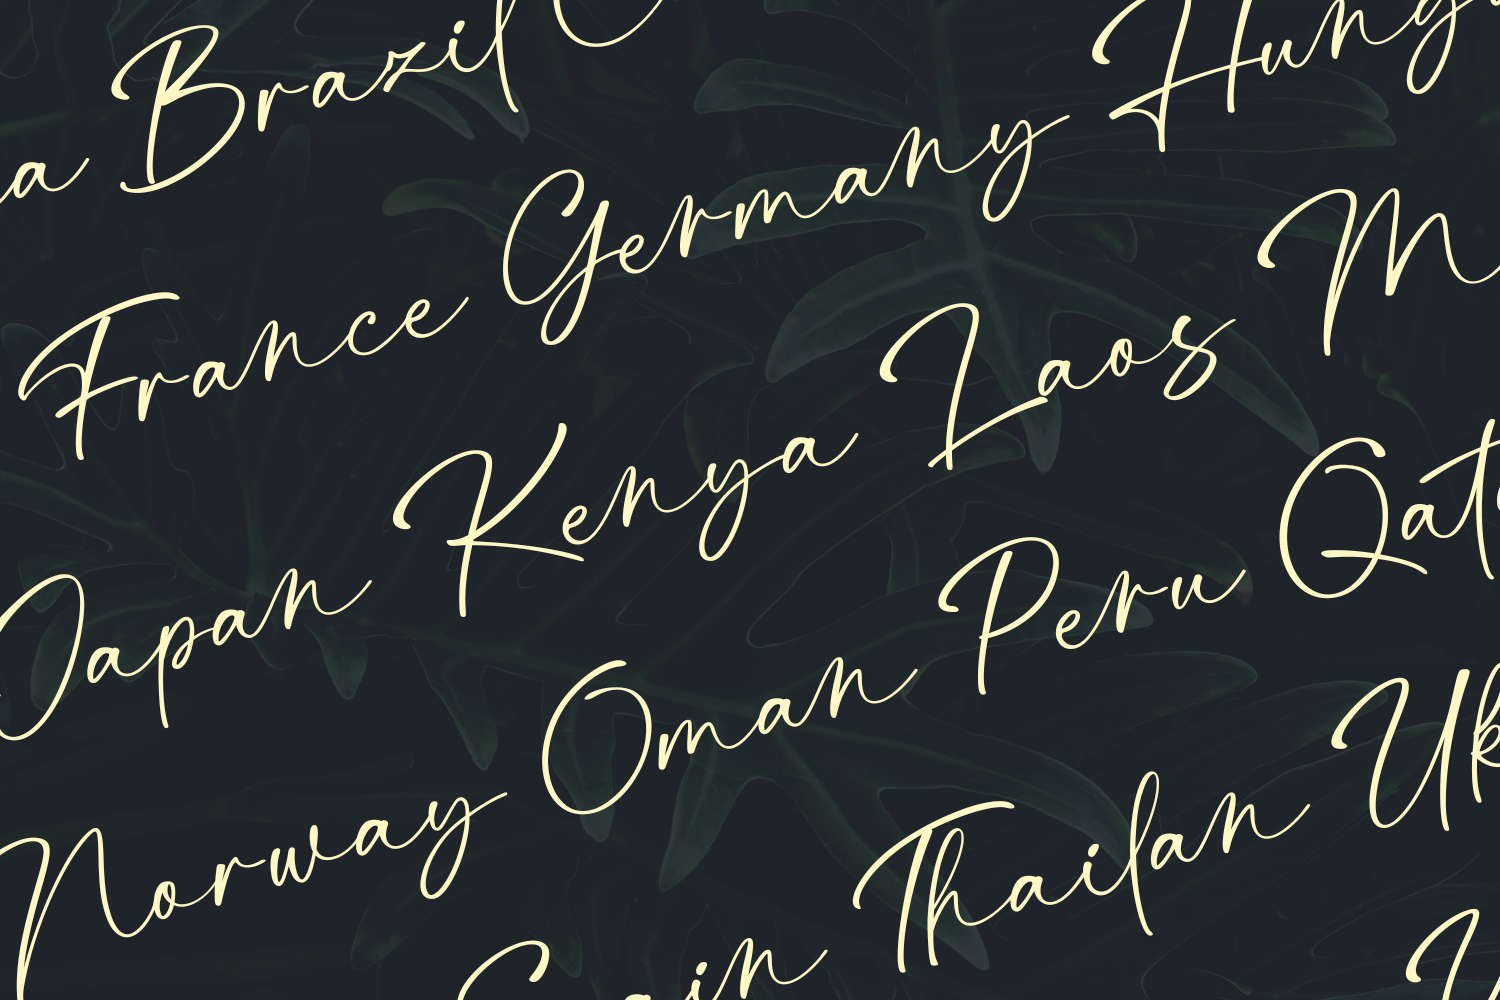 a Brazil
France Germany Hung
Japan Kenya Laos M
Norway Oman Peru Qat
Thailan Uk